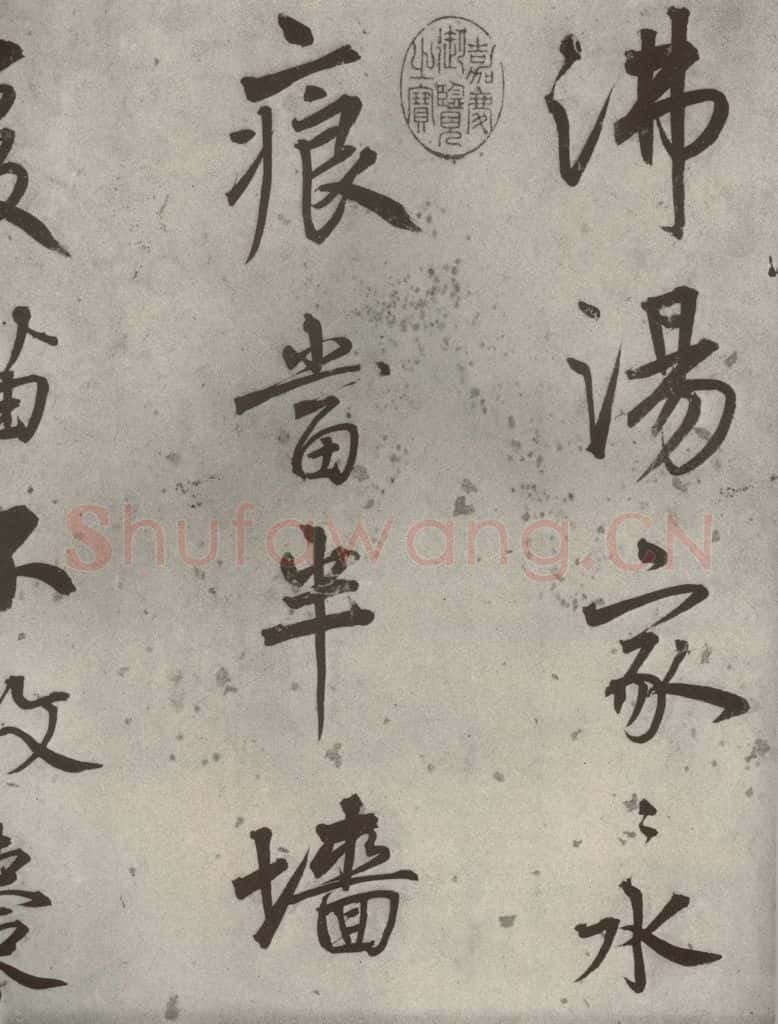 沸湯家〻水
嘉慶
御覽
之寶
痕當半墻
不
Shufawang.CN